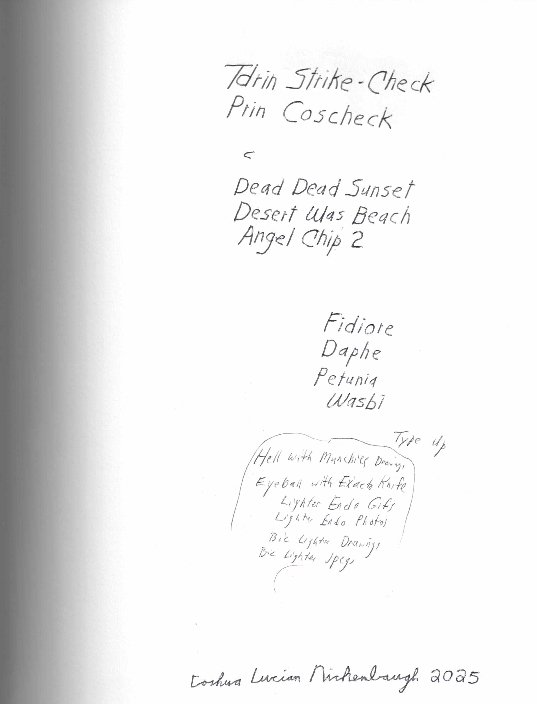 Tdrin Strike-Check
Prin Coscheck
Dead Dead Sunset
Desert Was Beach
Angel Chip 2
Fidiore
Daphe
Petunia
Wasbi
Type Up
Hell with Munchies Drawings
Eyeball with Exacto Knife
Lighter Endo Gifs
Lighter Endo Photos
Bic Lighter Drawings
Bic Lighter Jpegs
Joshua Lucian 2025